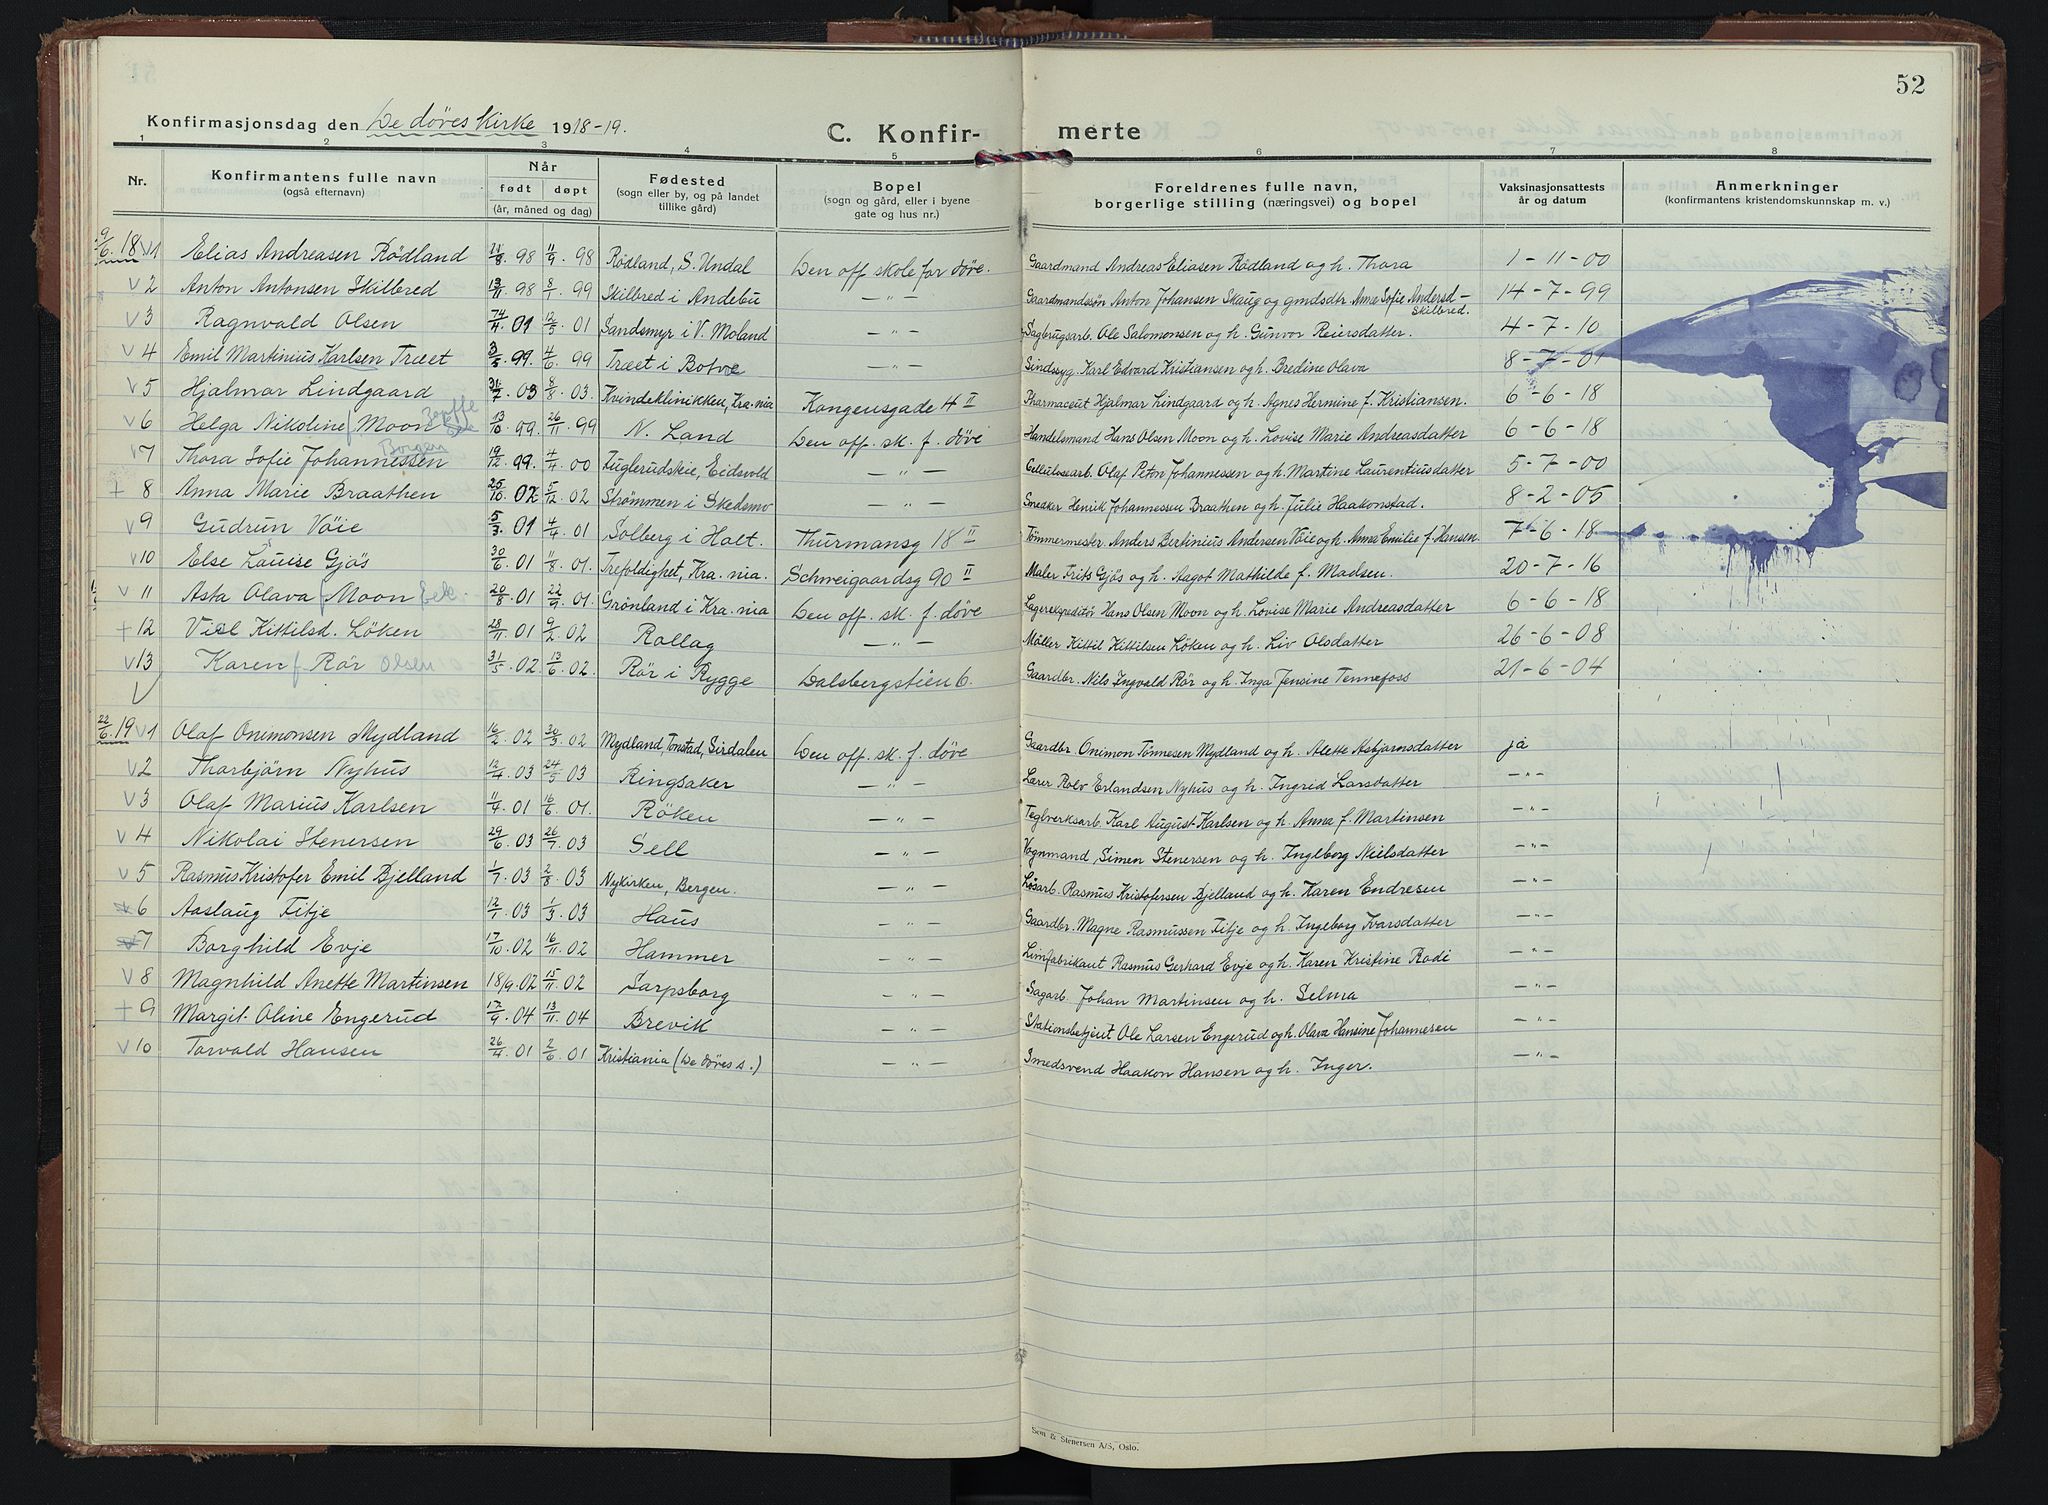 52
Konfirmasjonsdag den De døves Kirke 1918-19.
C. Konfir- merte
1 2 3 4 5 6 7 8
Nr.
Konfirmantens fulle navn
(også efternavn)
Når
født døpt
(år, måned og dag)
Fødested
(sogn eller by, og på landet
tillike gård)
Bopel
(sogn og gård, eller i byene
gate og hus nr.)
Foreldrenes fulle navn,
borgerlige stilling (næringsvei) og bopel
Vaksinasjonsattests
år og datum
Anmerkninger
(konfirmantens kristendomskunnskap m. v.)
9/6. 18 V1 Elias Andreasen Rödland 21/8. 98 11/9. 98 Rödland, S. Undal Den off. skole for døve. Gaardmand Andreas Eliasen Rødland og h. Thora 1-11-00
V 2 Anton Antonsen Skilbred 13/11. 98 8/1. 99 Skilbred i Andebu — " — Gaardmandssøn Anton Johansen Skaug og gmdsdtr Anne Sofie Andersd - Skilbred. 14-7-99
V 3 Ragnvald Olsen 24/4. 01 12/5. 01 Sandsmyr i V. Moland — " — Sagbrugsarb. Ole Salomonsen og h. Gunvor Reiersdatter. 4-7-10
V 4 Emil Martinius Karlsen Træet 3/5. 99 4/6. 99 Træet i Botne — " — Sindssyg. Karl Edvard Kristiansen og h. Bredine Olava 8-7-01
V 5 Hjalmar Lindgaard 31/7. 03 8/8. 03 Kvindeklinikken, Kra.nia Kongensgade 4 II Pharmaceut Hjalmar Lindgaard og h. Agnes Hermine f. Kristiansen. 6-6-18
V 6 Helga Nikoline f Moon 13/10. 99 26/11. 99 N. Land Den off. sk. f. døve Handelsmand Hans Olsen Moon og h. Lovise Marie Andreasdatter 6-6-18
Borgen
V7 Thora Sofie Johannessen 19/12. 99. 4/4. 00 Fuglerudskie, Eidsvold — " — Cellulosearb. Olaf Peton Johannessen og h. Martine Laurentiusdatter 5-7-00
+ 8 Anna Marie Braathen 25/10. 02. 5/12. 02 Strømmen i Skedsmo — " — Snekker Henrik Johannessen Braathen og h. Julie Haakonstad. 8-2-05
V 9 Gudrun Vöie 5/3. 01 4/4. 01 Solberg i Holt. Thurmansg 18 II Tömmermester. Anders Bertinius Andersen Vöie og h. Anna Emilie f. Hansen. 7-6-18
V 10 Else Louise Gjös 30/6. 01 11/8. 01. Trefoldighet, Kra.nia. Schweigaardsg 90 II Maler Frits Gjös og h. Aagot Mathilde f. Madsen. 20-7-16
V 11 Asta Olava f Moon Eek. 20/8. 01 22/9. 01. Grönland i Kra.nia Den off. sk. f. døve Lagerekspeditör Hans Olsen Moon og h. Lovise Marie Andreasdatter 6-6-18
+ 12 Viel Kittilsd. Löken 28/11. 01 9/2. 02 Rollag — " — Möller Kittil Kittilsen Löken og h. Liv Olsdatter 26-6-08
V 13 Karen f Rör Olsen 31/5. 02. 13/6. 02. Rör i Rygge Dalsbergstien 6. Gaardbr. Nils Ingvald Rör og h. Inga Jensine Tennefoss 21-6-04
V
22/6. 19 V1 Olaf Onimonsen Mydland 16/2. 02 30/3. 02 Mydland, Tonstad, Sirdalen Den off. sk. f. døve Gaardbr. Onimon Tönnesen Mydland og h. Alette Asbjørnsdatter ja
V 2 Thorbjörn Nyhus 12/4. 03 24/5. 03 Ringsaker — " — Lærer Rolv Erlandsen Nyhus og h. Ingrid Larsdatter — " —
V 3 Olaf Marius Karlsen 11/4. 01 16/6. 01. Röken — " — Teglverksarb. Karl August Karlsen og h. Anna f. Martinsen — " —
V 4 Nikolai Stenersen 29/6. 03 26/7. 03 Sell — " — Vognmand, Simen Stenersen og h. Ingeborg Nielsdatter — " —
V 5 Rasmus Kristofer Emil Bjelland 1/7. 03 2/8. 03 Nykirken, Bergen. — " — Løsarb. Rasmus Kristofersen Bjelland og h. Karen Endresen — " —
6 Aaslaug Fitje 12/1. 03 1/3. 03 Haus — " — Gaardbr. Magne Rasmussen Fitje og h. Ingeborg Ivarsdatter — " —
7 Borghild Evje 17/10. 02 16/11. 02 Hammer — " — Limfabrikant Rasmus Gerhard Evje og h. Karen Kristine Rodi — " —
V 8 Magnhild Anette Martinsen 18/9. 02 15/11. 02 Sarpsborg — " — Sagarb. Johan Martinsen og h. Selma — " —
+ 9 Margit Oline Engerud 17/9. 04 13/11. 04 Brevik — " — Stationsbetjent Ole Larsen Engerud og h. Olava Hansine Johannesen — " —
V 10 Torvald Hansen 26/4. 01 2/6. 01 Kristiania (De døves s.) — " — Smedsvend Haakon Hansen og h. Inger. — " —
Sem & Stenersen A/S, Oslo.